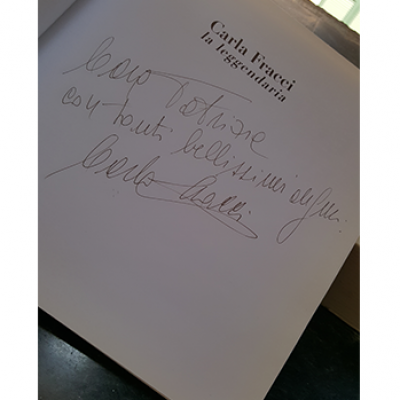 Carla Fracci
la leggendaria
Caro
con tanti bellissimi auguri
Carla Fracci